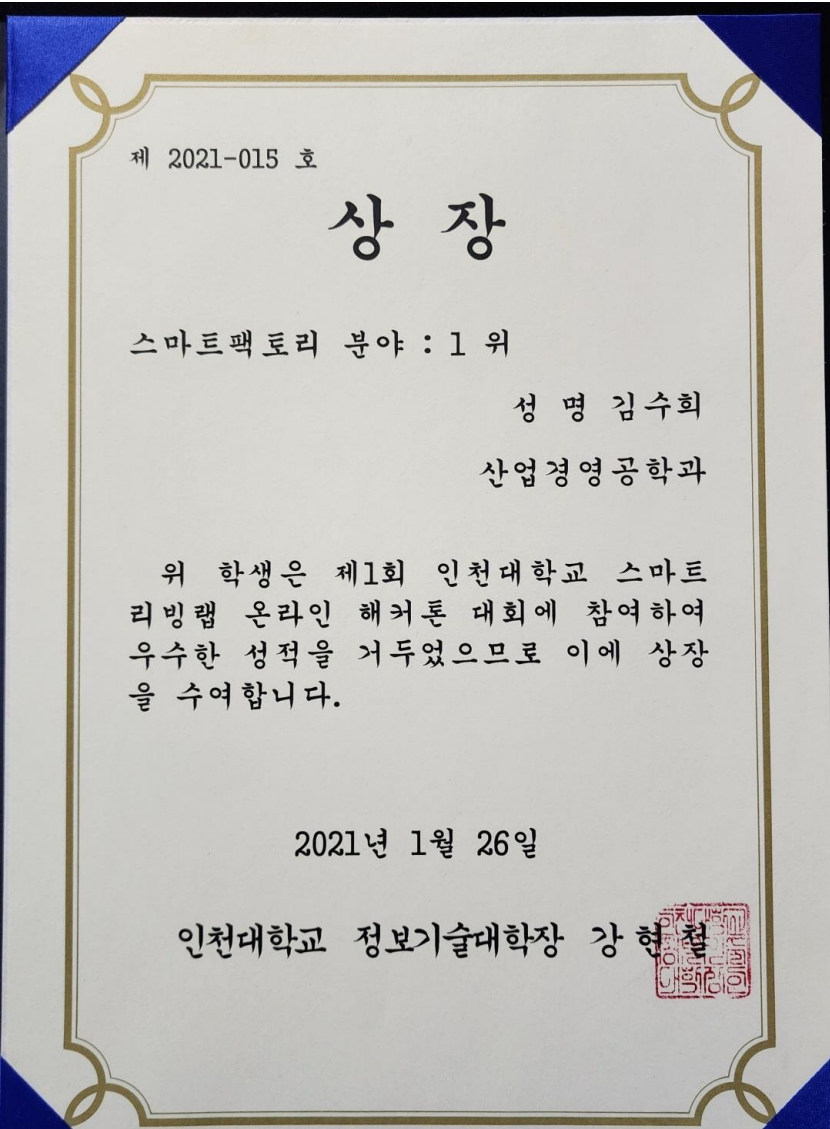 제 2021-015 호
상 장
스마트팩토리 분야 : 1 위
성 명 김수희
산업경영공학과
위 학생은 제1회 인천대학교 스마트
리빙랩 온라인 해커톤 대회에 참여하여
우수한 성적을 거두었으므로 이에 상장
을 수여합니다.
2021년 1월 26일
인천대학교 정보기술대학장 강 현 철